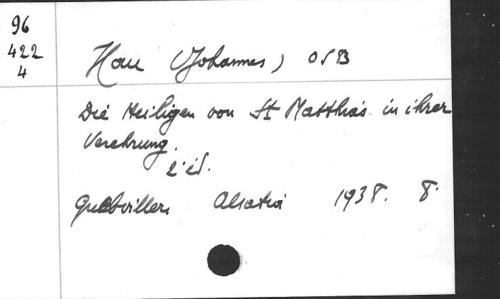 96
422
4
Hau (Johannes) OSB
Die Heiligen von St Matthias in ihrer
Verehrung.
Guebwiller Alsatia 1938. 8.